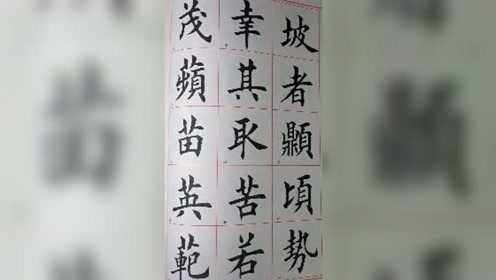 坡者頃勢
幸其取苦若
茂蘋苗英範